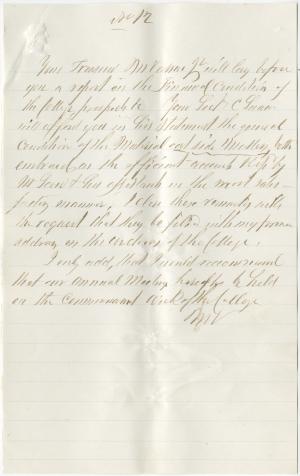 No 12
Your Treasurer will lay before
you a report on the Financial Condition
of the College
will afford you in his statement the general
Condition of the Material out side
embraced, in the efficient accounts kept by
in the most satis-
factory manner, I close these remarks with
the request that they be filed with my former
address on the archives of the College.
I only add, that I would recommend
that our annual Meeting hereafter be held
on the Commencement Week of the College